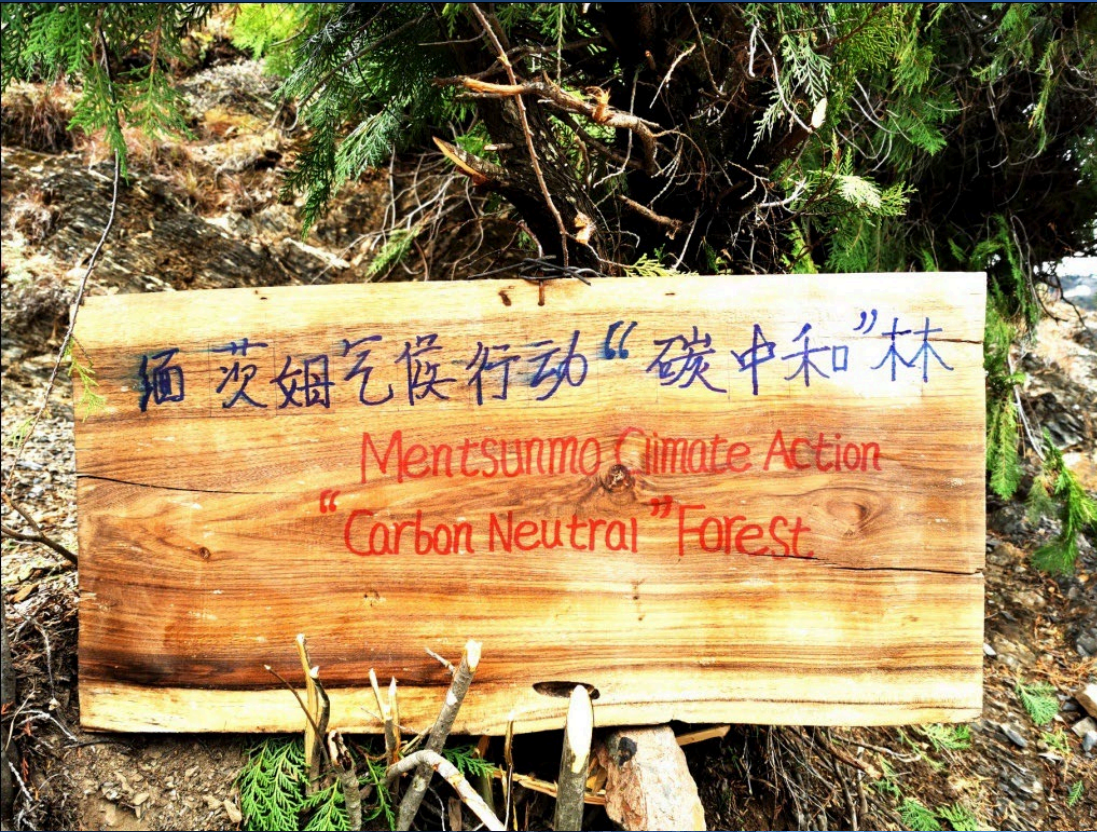 缅茨姆气候行动“碳中和”林
Mentsunmo Climate Action
“Carbon Neutral” Forest